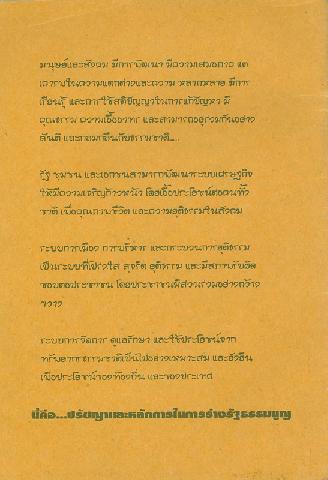 มนุษย์และสังคม มีการพัฒนา มีความเสมอภาค แต่
เคารพในความแตกต่างและความ หลากหลาย มีการ
เรียนรู้ และการใช้สติปัญญาในการแก้ปัญหา มี
คุณธรรม ความเอื้ออาทร และสามารถอยู่รวมกันอย่าง
สันติ และกลมกลืนกับธรรมชาติ....
รัฐ ชุมชน และเอกชนสามารถพัฒนาระบบเศรษฐกิจ
ให้มีความเจริญก้าวหน้า โดยเอื้อประโยชน์ต่อคนทั้ง
ชาติ เพื่อคุณภาพชีวิต และความยุติธรรมในสังคม
ระบบการเมือง การบริหาร และกระบวนการยุติธรรม
เป็นระบบที่โปร่งใส สุจริต ยุติธรรม และมีความรับผิด
ชอบต่อประชาชน โดยประชาชนมีส่วนร่วมอย่างกว้าง
ขวาง
ระบบการจัดการ ดูแลรักษา และใช้ประโยชน์จาก
ทรัพยากรธรรมชาติเป็นไปอย่างเหมาะสม และยั่งยืน
เพื่อประโยชน์ของท้องถิ่น และของประเทศ
นี่คือ...ปรัชญาและหลักการในการร่างรัฐธรรมนูญ